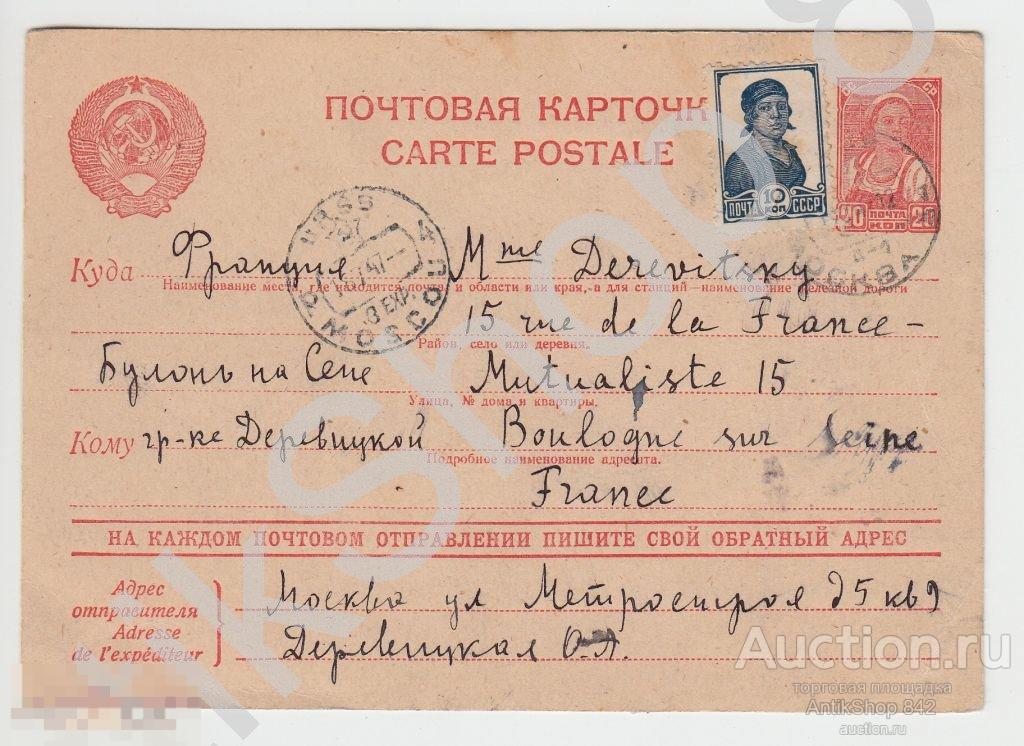 ПОЧТОВАЯ КАРТОЧК
CARTE POSTALE
ПОЧТА 10 КОП СССР
20 ПОЧТА КОП 20
МОСКВА
USSR
MOSCOU
47
EXP.
Куда Франция Mme Derevitsky
Наименование места, где находится почта, и области или края, а для станций—наименование железной дороги
15 rue de la France-
Район, село или деревня.
Булонь на Сене Mutualiste 15
Улица, № дома и квартиры.
Кому гр-ке Деревицкой Boulogne sur Seine
Подробное наименование адресата.
France
НА КАЖДОМ ПОЧТОВОМ ОТПРАВЛЕНИИ ПИШИТЕ СВОЙ ОБРАТНЫЙ АДРЕС
Адрес отправителя Москва ул Метростроя д5 кв9
Adresse de l'expéditeur Деревицкая О.А.
Auction.ru
торговая площадка
AntikShop 842
auction.ru